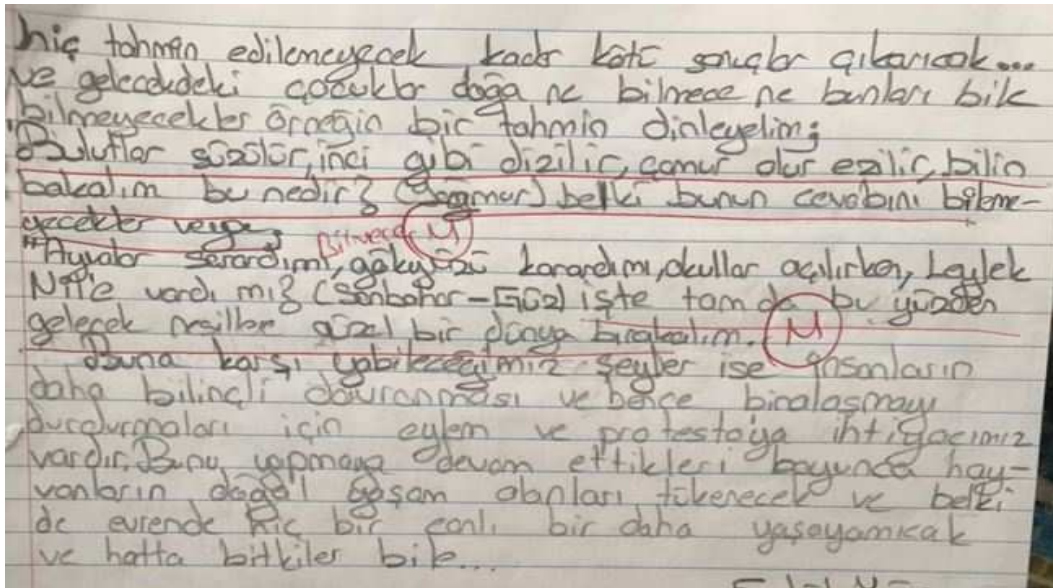 hiç tahmin edilemeyecek kadar kötü sonuçlar çıkarıcak...
ve gelecekdeki çocuklar doğa ne bilmece ne bunları bile
bilmeyecekler örneğin bir tahmin dinleyelim;
Bulutlar süzülür, inci gibi dizilir, çamur olur ezilir, bilin
bakalım bu nedir? (Yağmur) belki bunun cevabını bileme-
yecekler veya;
Bilmece M
"Ayvalar sarardımı, gökyüzü karardımı, okullar açılırken, Leylek
Nil'e vardı mı? (Sonbahar-Güz) işte tam da bu yüzden
gelecek nesillere güzel bir dünya bırakalım. M
Buna karşı yabileceğimiz şeyler ise insanların
daha bilinçli davranması ve bence binalaşmayı
durdurmaları için eylem ve protestoya ihtiyacımız
vardır. Bunu yapmaya devam ettikleri boyunca hay-
vanların doğal yaşam alanları tükenecek ve belki
de evrende hiç bir canlı bir daha yaşayamıcak
ve hatta bitkiler bile...